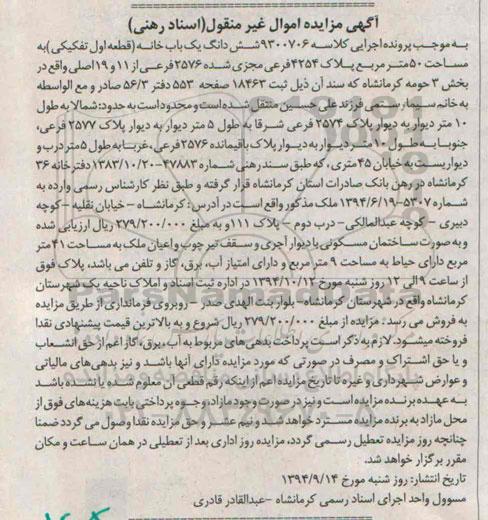 آگهی مزایده اموال غیر منقول(اسناد رهنی)
به موجب پرونده اجرایی کلاسه ۹۳۰۰۷۰۶ شش دانگ یک باب خانه (قطعه اول تفکیکی) به
مساحت ۵۰ متر مربع پلاک ۴۲۵۴ فرعی مجزی شده ۲۵۷۶ فرعی از ۱۱ و ۱۹ اصلی واقع در
بخش ۳ حومه کرمانشاه که سند آن ذیل ثبت ۱۸۴۶۳ صفحه ۵۵۳ دفتر ۵۶/۳ صادر و مع الواسطه
به خانم سیما رستمی فرزند علی حسین منتقل شده است و محدود است به حدود: شمالا به طول
۱۰ متر دیوار به دیوار پلاک ۲۵۷۴ فرعی شرقا به طول ۵ متر دیوار به دیوار پلاک ۲۵۷۷ فرعی،
جنوبا به طول ۱۰ متر دیوار به دیوار پلاک باقیمانده ۲۵۷۶ فرعی، غربا به طول ۵ متر درب و
دیواریست به خیابان ۴۵ متری، که طبق سند رهنی شماره ۴۷۸۸۳-۱۳۸۳/۱۰/۲۰ دفترخانه ۳۶
کرمانشاه در رهن بانک صادرات استان کرمانشاه قرار گرفته و طبق نظر کارشناس رسمی وارده به
شماره ۵۳۰۷-۱۳۹۴/۶/۱۹ ملک مذکور واقع است در آدرس: کرمانشاه – خیابان نقلیه – کوچه
دبیری – کوچه عبدالمالکی- درب دوم – پلاک ۱۱۱ و به مبلغ ۲۷۹/۲۰۰/۰۰۰ ریال ارزیابی شده
و به صورت ساختمان مسکونی با دیوار آجری و سقف تیر چوب و اعیان ملک به مساحت ۴۱ متر
مربع دارای حیاط به مساحت ۹ متر مربع و دارای امتیاز آب، برق، گاز و تلفن می باشد، پلاک فوق
از ساعت ۹ الی ۱۲ روز شنبه مورخ ۱۳۹۴/۱۰/۱۲ در اداره ثبت اسناد و املاک ناحیه یک شهرستان
کرمانشاه واقع در شهرستان کرمانشاه- بلوار بنت الهدی صدر – روبروی فرمانداری از طریق مزایده
به فروش می رسد: مزایده از مبلغ ۲۷۹/۲۰۰/۰۰۰ ریال شروع و به بالاترین قیمت پیشنهادی نقدا
فروخته میشود. لازم به ذکر است پرداخت بدهی های مربوط به آب، برق، گاز اعم از حق انشعاب
و یا حق اشتراک و مصرف در صورتی که مورد مزایده دارای آنها باشد و نیز بدهی های مالیاتی
و عوارض شهرداری و غیره تا تاریخ مزایده اعم از اینکه رقم قطعی آن معلوم شده یا نشده باشد
به عهده برنده مزایده است و نیز در صورت وجود مازاد، وجوه پرداختی بابت هزینه های فوق از
محل مازاد به برنده مزایده مسترد خواهد شد و نیم عشر و حق مزایده نقدا وصول می گردد ضمنا
چنانچه روز مزایده تعطیل رسمی گردد، مزایده روز اداری بعد از تعطیلی در همان ساعت و مکان
مقرر برگزار خواهد شد.
تاریخ انتشار: روز شنبه مورخ ۱۳۹۴/۹/۱۴
مسوول واحد اجرای اسناد رسمی کرمانشاه -عبدالقادر قادری